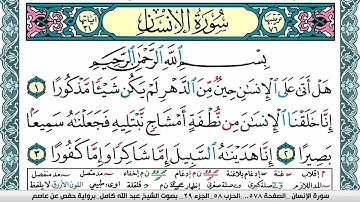 سُورَةُ الإِنسَانِ
بِسْمِ اللَّهِ الرَّحْمَٰنِ الرَّحِيمِ
هَلْ أَتَىٰ عَلَى الْإِنسَانِ حِينٌ مِّنَ الدَّهْرِ لَمْ يَكُن شَيْئًا مَّذْكُورًا ١
إِنَّا خَلَقْنَا الْإِنسَانَ مِن نُّطْفَةٍ أَمْشَاجٍ نَّبْتَلِيهِ فَجَعَلْنَاهُ سَمِيعًا
بَصِيرًا ٢ إِنَّا هَدَيْنَاهُ السَّبِيلَ إِمَّا شَاكِرًا وَإِمَّا كَفُورًا ٣
سورة الإنسان _ الصفحة ٥٧٨ _ الحزب ٥٨ _ الجزء ٢٩ _ بصوت الشيخ عبد الله كامل _ برواية حفص عن عاصم